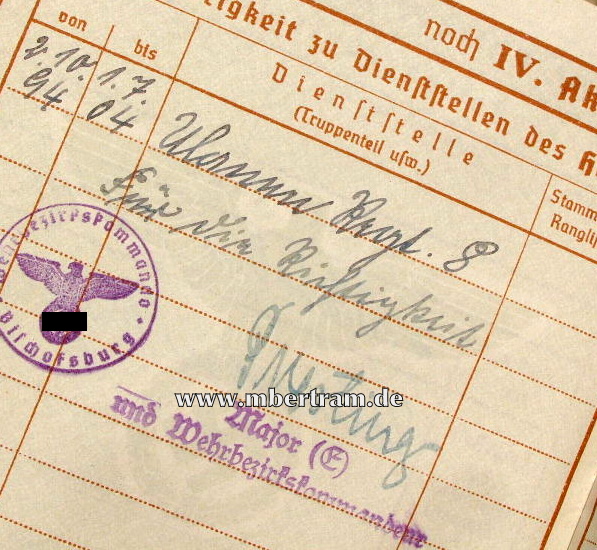 noch IV. Ak
igkeit zu Dienststellen des H
von
bis
Dienststelle
(Truppenteil usw.)
Stamm
Ranglis
2.10.
94
1.7.
04
Ulanen Regt. 8
Für die Richtigkeit
Wehrbezirkskommando
Bischofsburg
www.mbertram.de
Major (E)
und Wehrbezirkskommandeur